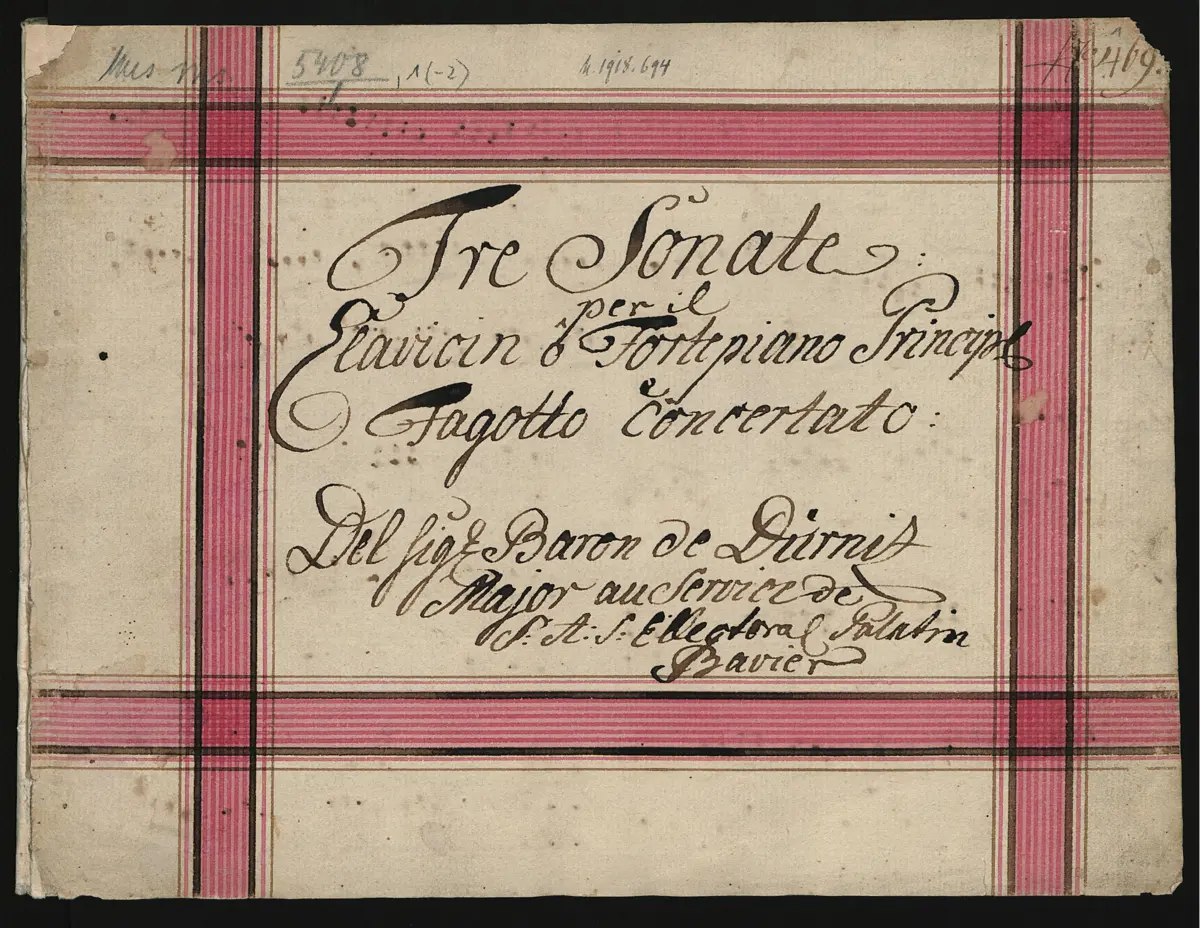 Mus ms. 5408, 1(-2) M.1918.694 No 469.
Tre Sonate:
per il
Clavicin ô Fortepiano Principl
e
Fagotto Concertato:
Del sigr Baron de Dürniz
Major au Service de
S: A: S: Ellectoral Palatin
Bavier